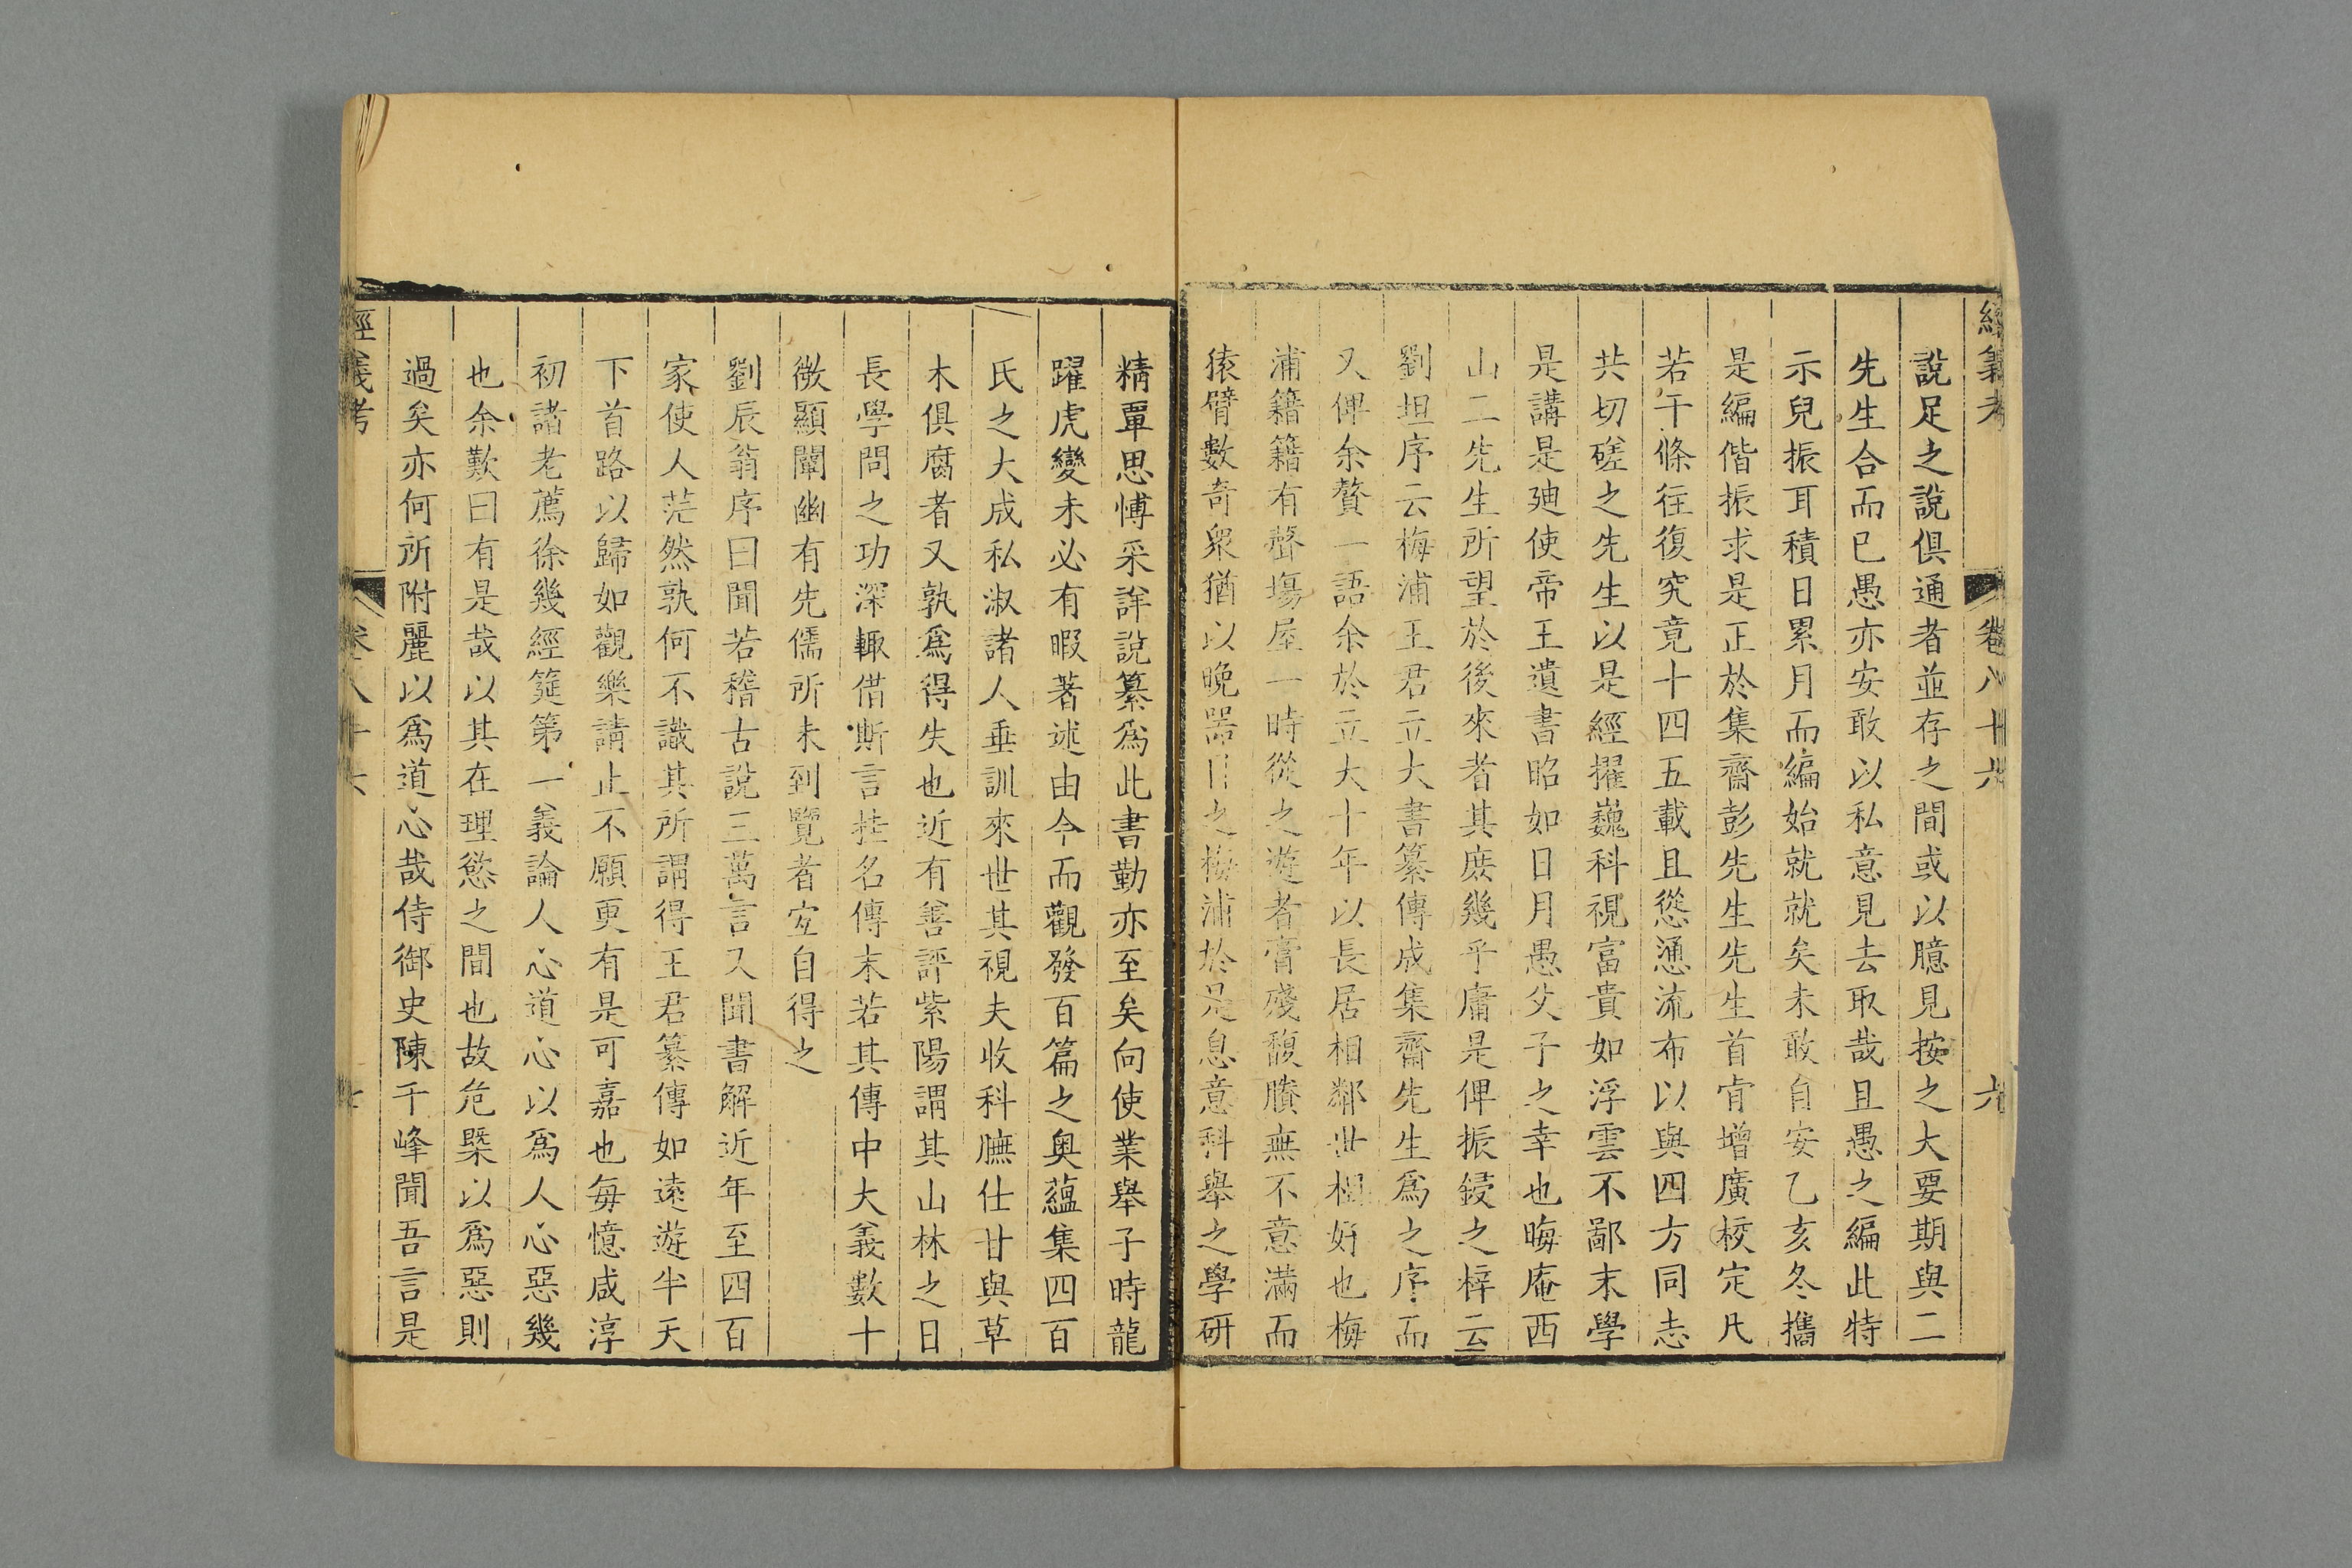 經義考 卷八十六 六
說足之說俱通者並存之間或以臆見按之大要期與二
先生合而已愚亦安敢以私意見去取哉且愚之編此特
示兒振耳積日累月而編始就就矣未敢自安乙亥冬攜
是編偕振求是正於集齋彭先生先生首肯增廣校定凡
若干條往復究竟十四五載且慫慂流布以與四方同志
共切磋之先生以是經擢巍科視富貴如浮雲不鄙末學
是講是廸使帝王遺書昭如日月愚父子之幸也晦庵西
山二先生所望於後來者其庶幾乎庸是俾振鋟之梓云
劉坦序云梅浦王君立大書纂傳成集齋先生爲之序而
又俾余贅一語余於立大十年以長居相鄰世相好也梅
浦籍籍有聲塲屋一時從之遊者膏殘馥賸無不意滿而
猿臂數奇衆猶以晚器目之梅浦於是息意科舉之學研
精覃思博采詳說纂爲此書勤亦至矣向使業舉子時龍
躍虎變未必有暇著述由今而觀發百篇之奥蘊集四百
氏之大成私淑諸人垂訓來世其視夫收科膴仕甘與草
木俱腐者又孰爲得失也近有善評紫陽謂其山林之日
長學問之功深輒借斯言挂名傳末若其傳中大義數十
微顯闡幽有先儒所未到覽者宜自得之
劉辰翁序曰聞若稽古說三萬言又聞書解近年至四百
家使人茫然孰何不識其所謂得王君纂傳如遠遊半天
下首路以歸如觀樂請止不願更有是可嘉也每憶咸淳
初諸老薦徐幾經筵第一義論人心道心以爲人心惡幾
也余歎曰有是哉以其在理慾之間也故危槩以爲惡則
過矣亦何所附麗以爲道心哉侍御史陳千峰聞吾言是
經義考 卷八十六 七